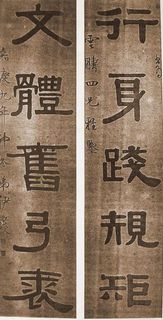 行身踐規矩
四兄雅鑒
文體舊弓裘
嘉慶九年仲冬弟伊秉綬